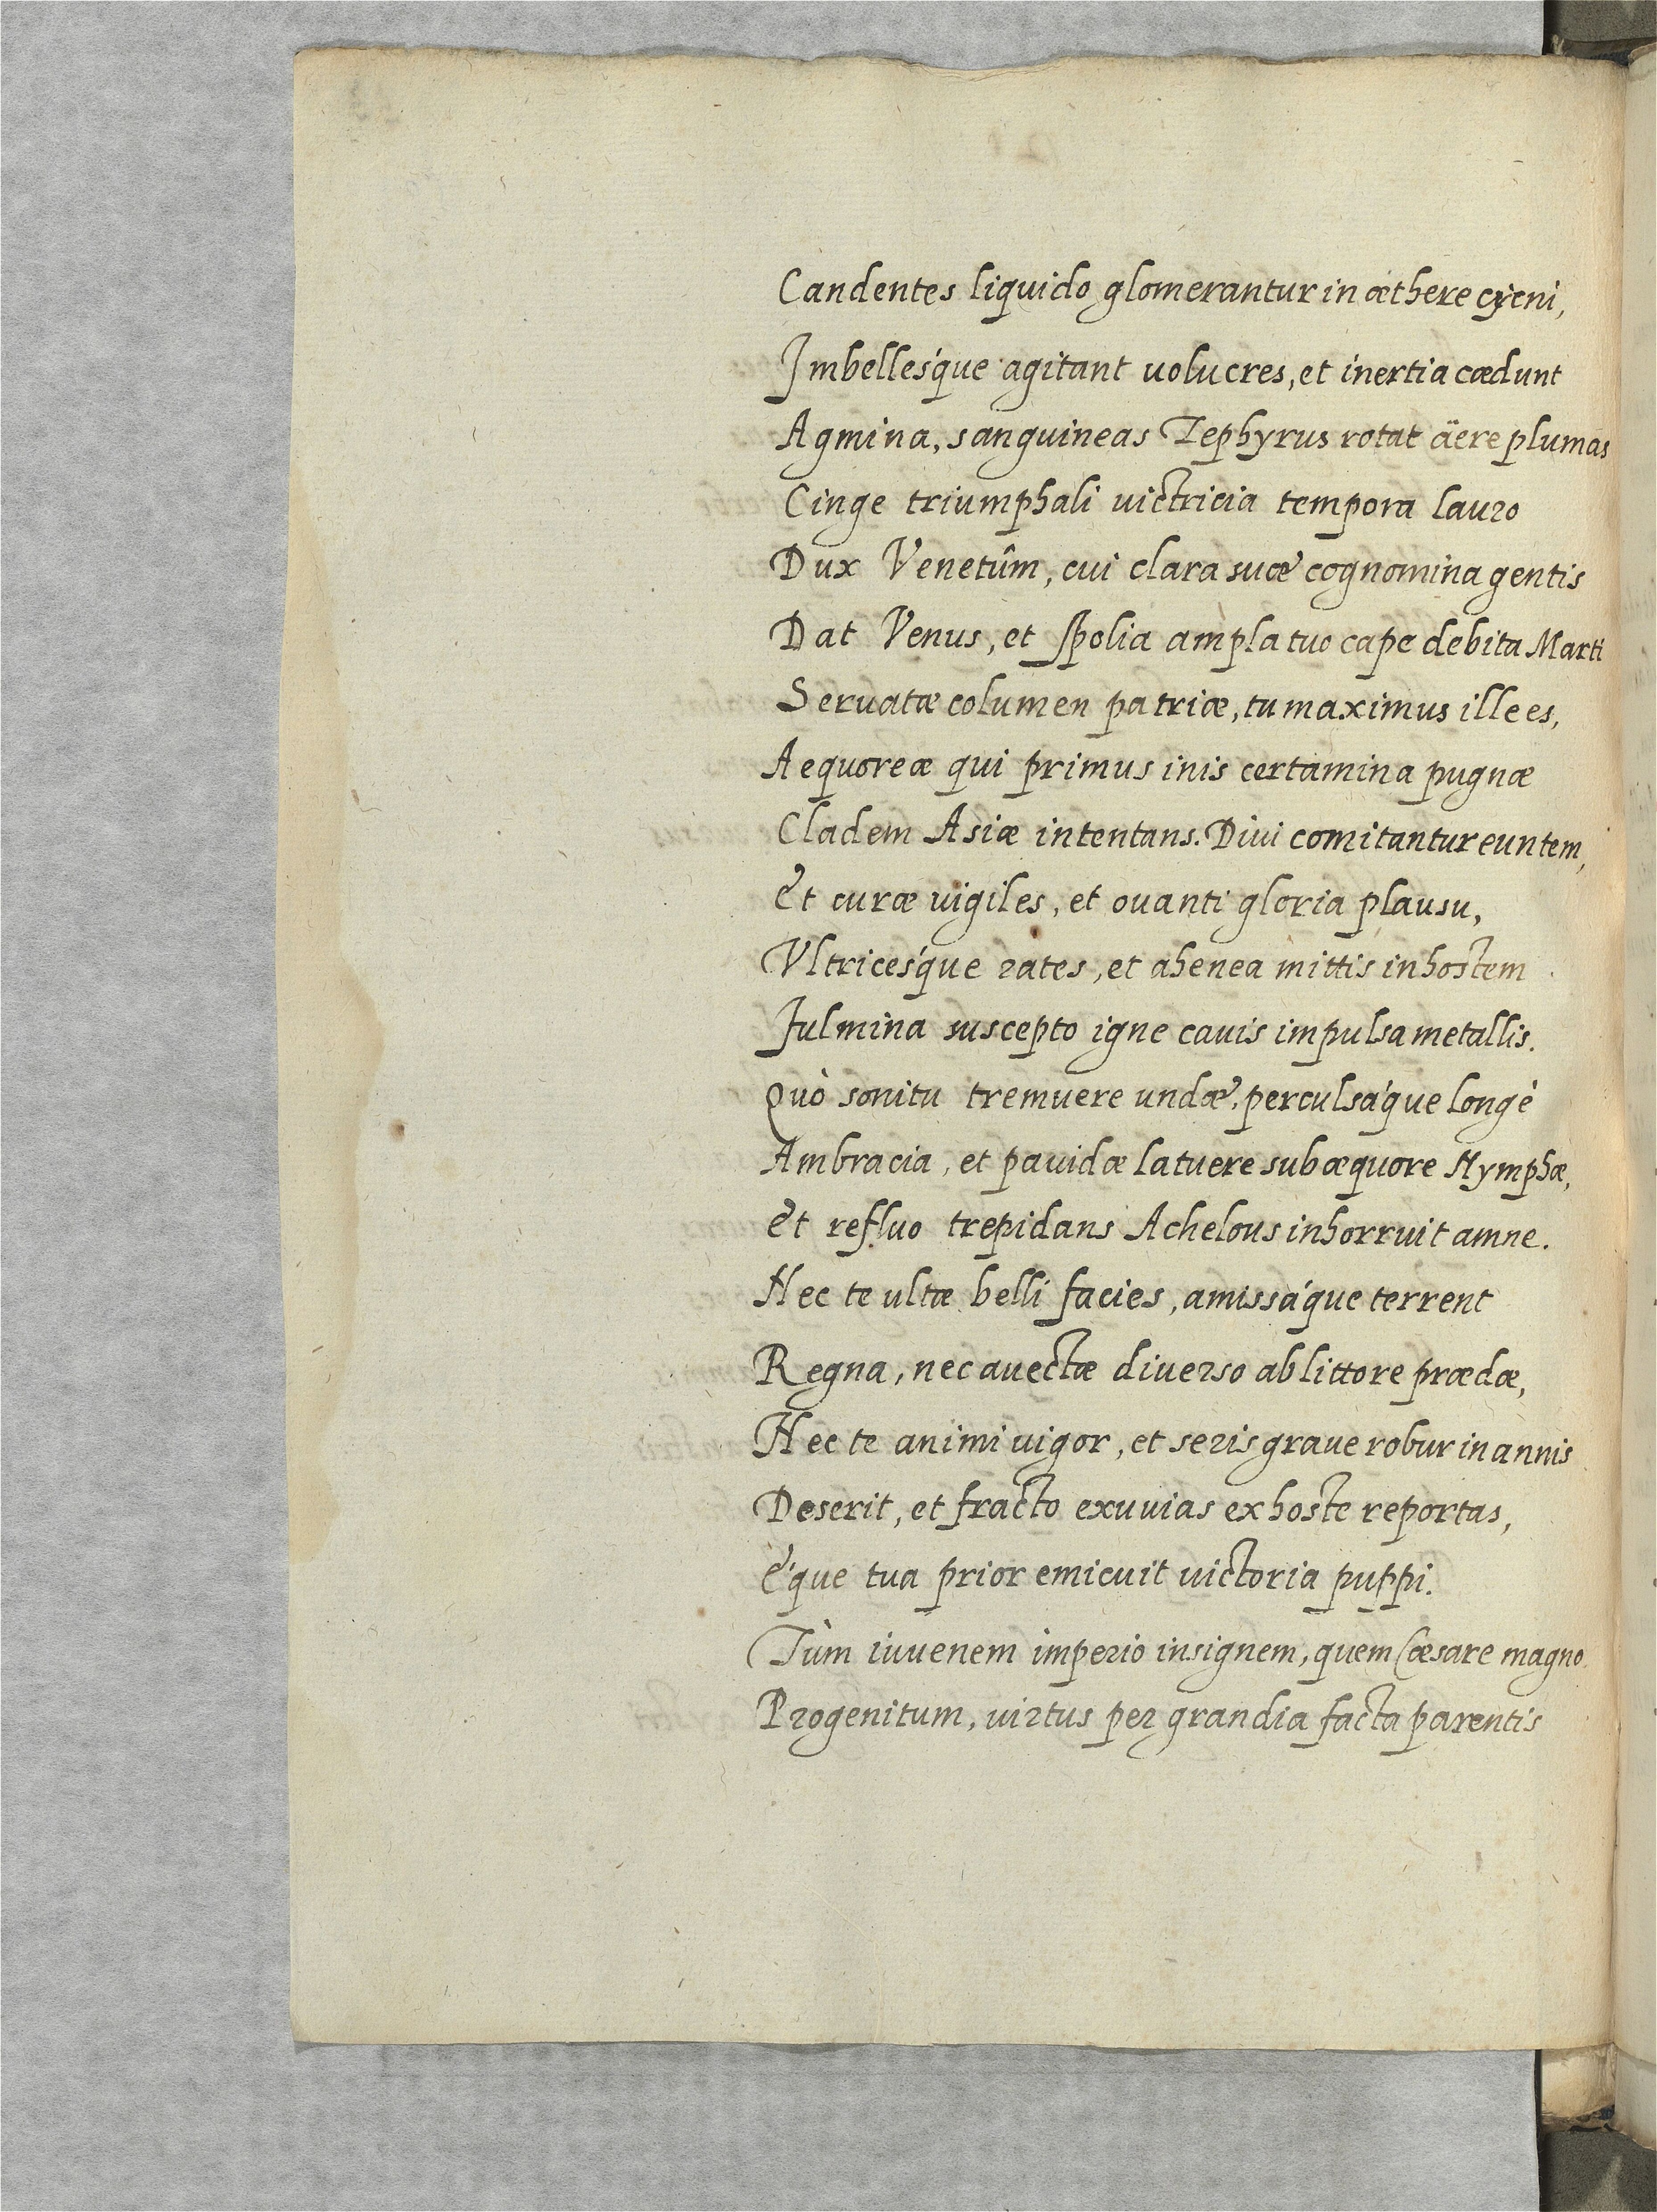 Candentes liquido glomerantur in æthere cycni,
Imbellesq́ue agitant uolucres, et inertia cædunt
Agmina, sanguineas Zephyrus rotat äere plumas
Cinge triumphali uictricia tempora lauro
Dux Venetûm, cui clara suæ cognomina gentis
Dat Venus, et spolia ampla tuo cape debita Marti
Seruatæ columen patriæ, tu maximus ille es,
Aequoreæ qui primus inis certamina pugnæ
Cladem Asiæ intentans. Diui comitantur euntem,
Et curæ uigiles, et ouanti gloria plausu,
Vltricesq́ue rates, et ahenea mittis in hostem
Fulmina suscepto igne cauis impulsa metallis.
Quò sonitu tremuere undæ, perculsaq́ue longè
Ambracia, et pauidæ latuere sub æquore Nymphæ,
Et refluo trepidans Achelous inhorruit amne.
Nec te ultæ belli facies, amissaq́ue terrent
Regna, nec auectæ diuerso ab littore prædæ,
Nec te animi uigor, et seris graue robur in annis
Deserit, et fracto exuuias ex hoste reportas,
Eq́ue tua prior emicuit uictoria puppi.
Tùm iuuenem imperio insignem, quem Cæsare magno
Progenitum, uirtus per grandia facta parentis